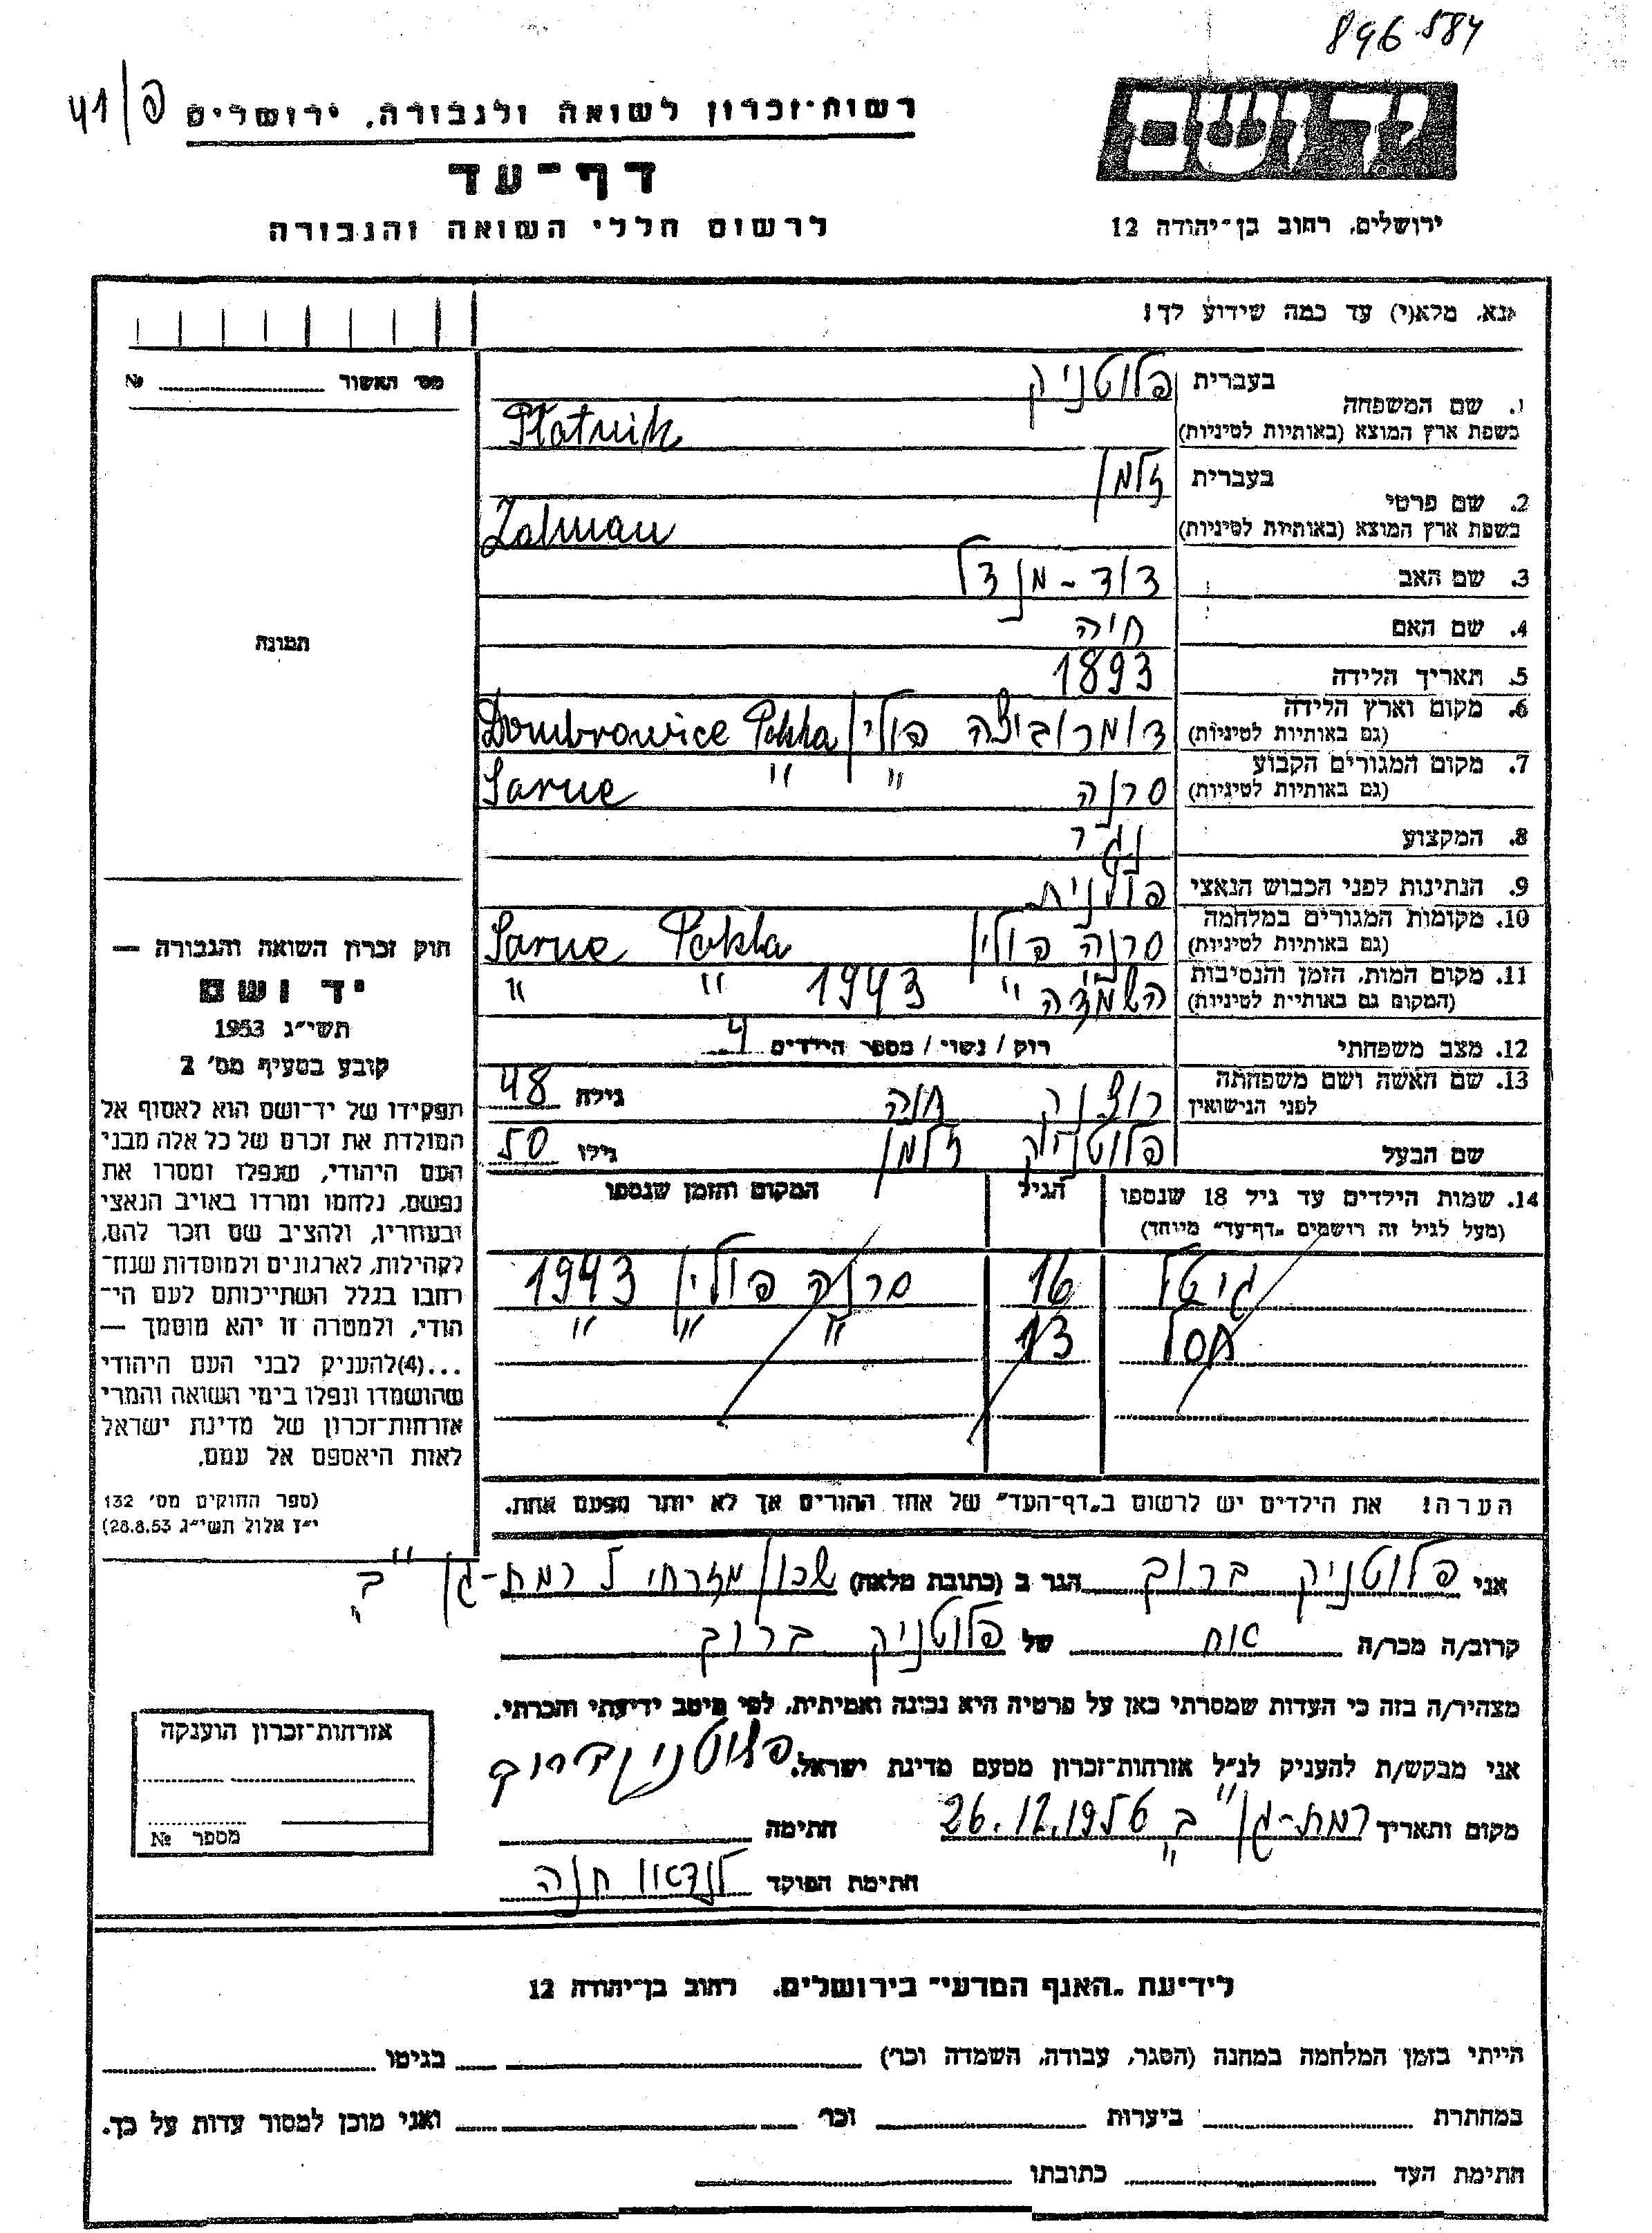 896.584
41/פ
רשות-זכרון לשואה ולגבורה, ירושלים
דף-עד
לרשום חללי השואה והגבורה
יד ושם
ירושלים, רחוב בן-יהודה 12
נא, מלא(י) עד כמה שידוע לך!
מס' האשור № 
תמונה
1. שם המשפחה
בעברית פלוטניק
בשפת ארץ המוצא (באותיות לטיניות) Płotnik
2. שם פרטי
בעברית זלמן
בשפת ארץ המוצא (באותיות לטיניות) Zalman
3. שם האב דוד - מנדל
4. שם האם חיה
5. תאריך הלידה 1893
6. מקום וארץ הלידה (גם באותיות לטיניות) דומרוביצה פולין Dombrowice Polska
7. מקום המגורים הקבוע (גם באותיות לטיניות) סרנה " Sarne "
8. המקצוע נגר
9. הנתינות לפני הכבוש הנאצי פולנית
10. מקומות המגורים במלחמה (גם באותיות לטיניות) סרנה פולין Sarne Polska
11. מקום המות, הזמן והנסיבות (המקום גם באותיות לטיניות) השמדה " 1943 " "
12. מצב משפחתי רוק / נשוי / מספר הילדים 4
13. שם האשה ושם משפחתה לפני הנישואין חנה גילה 48
שם הבעל פלוטניק זלמן גילו 50
14. שמות הילדים עד גיל 18 שנספו (מעל לגיל זה רושמים "דף-עד" מיוחד) הגיל המקום והזמן שנספו
גיטל 16 סרנה פולין 1943
אסל 13 " " "
הערה! את הילדים יש לרשום ב"דף-העד" של אחד ההורים אך לא יותר מפעם אחת.
חוק זכרון השואה והגבורה —
יד ושם
תשי"ג 1953
קובע בסעיף מס' 2
תפקידו של יד-ושם הוא לאסוף אל
המולדת את זכרם של כל אלה מבני
העם היהודי, שנפלו ומסרו את
נפשם, נלחמו ומרדו באויב הנאצי
ובעוזריו, ולהציב שם וזכר להם,
לקהילות, לארגונים ולמוסדות שנח-
רבו בגלל השתייכותם לעם הי-
הודי, ולמטרה זו יהא מוסמך —
...(4) להעניק לבני העם היהודי
שהושמדו ונפלו בימי השואה והמרי
אזרחות-זכרון של מדינת ישראל
לאות היאספם אל עמם.
(ספר החוקים מס' 132
י"ז אלול תשי"ג 28.8.53)
אני פלוטניק ברוך הגר ב (כתובת מלאה) שכון מזרחי 5 רמת-גן "ב"
קרוב/ה מכר/ה אח של פלוטניק ברוך
מצהיר/ה בזה כי העדות שמסרתי כאן על פרטיה היא נכונה ואמיתית, לפי מיטב ידיעתי והכרתי.
אני מבקש/ת להעניק לנ"ל אזרחות-זכרון מטעם מדינת ישראל. פלוטניק ברוך
מקום ותאריך רמת-גן "ב" 26.12.1956 חתימה
חתימת הפוקד לנדאו חנה
אזרחות-זכרון הוענקה
מספר №
לידיעת "האגף המדעי" בירושלים, רחוב בן-יהודה 12
הייתי בזמן המלחמה במחנה (הסגר, עבודה, השמדה וכו') בגיטו
במחתרת ביערות וכו' ואני מוכן למסור עדות על כך.
חתימת העד כתובתו